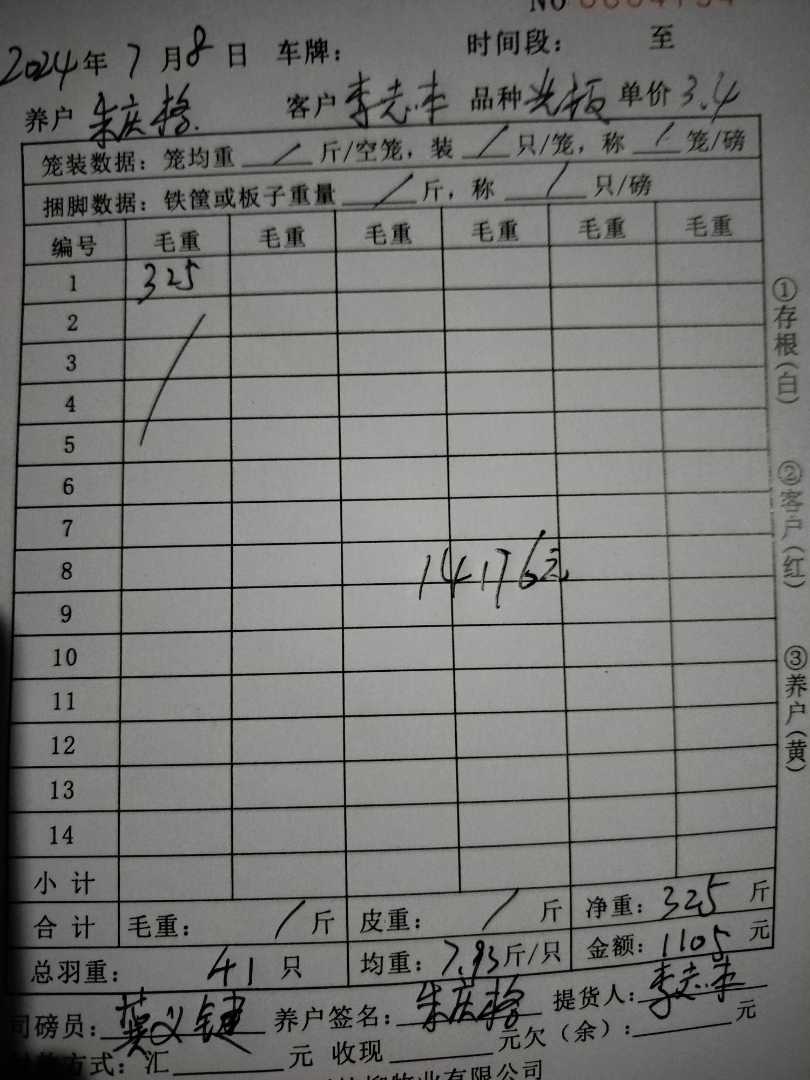 2024年7月8日 车牌: 时间段: 至
养户 朱庆 客户 李志 品种 单价 3.4
笼装数据: 笼均重 / 斤/空笼, 装 / 只/笼, 称 / 笼/磅
捆脚数据: 铁筐或板子重量 / 斤, 称 / 只/磅
编号 毛重 毛重 毛重 毛重 毛重 毛重
1 325
2
3
4
5
6
7
8 14176元
9
10
11
12
13
14
小计
合计 毛重: / 斤 皮重: / 斤 净重: 325 斤
总羽重: 41 只 均重: 7.93 斤/只 金额: 1105 元
司磅员: 义键 养户签名: 朱庆 提货人: 李志
方式: 汇 元 收现 元欠(余): 元
物业有限公司
①存根(白)
②客户(红)
③养户(黄)